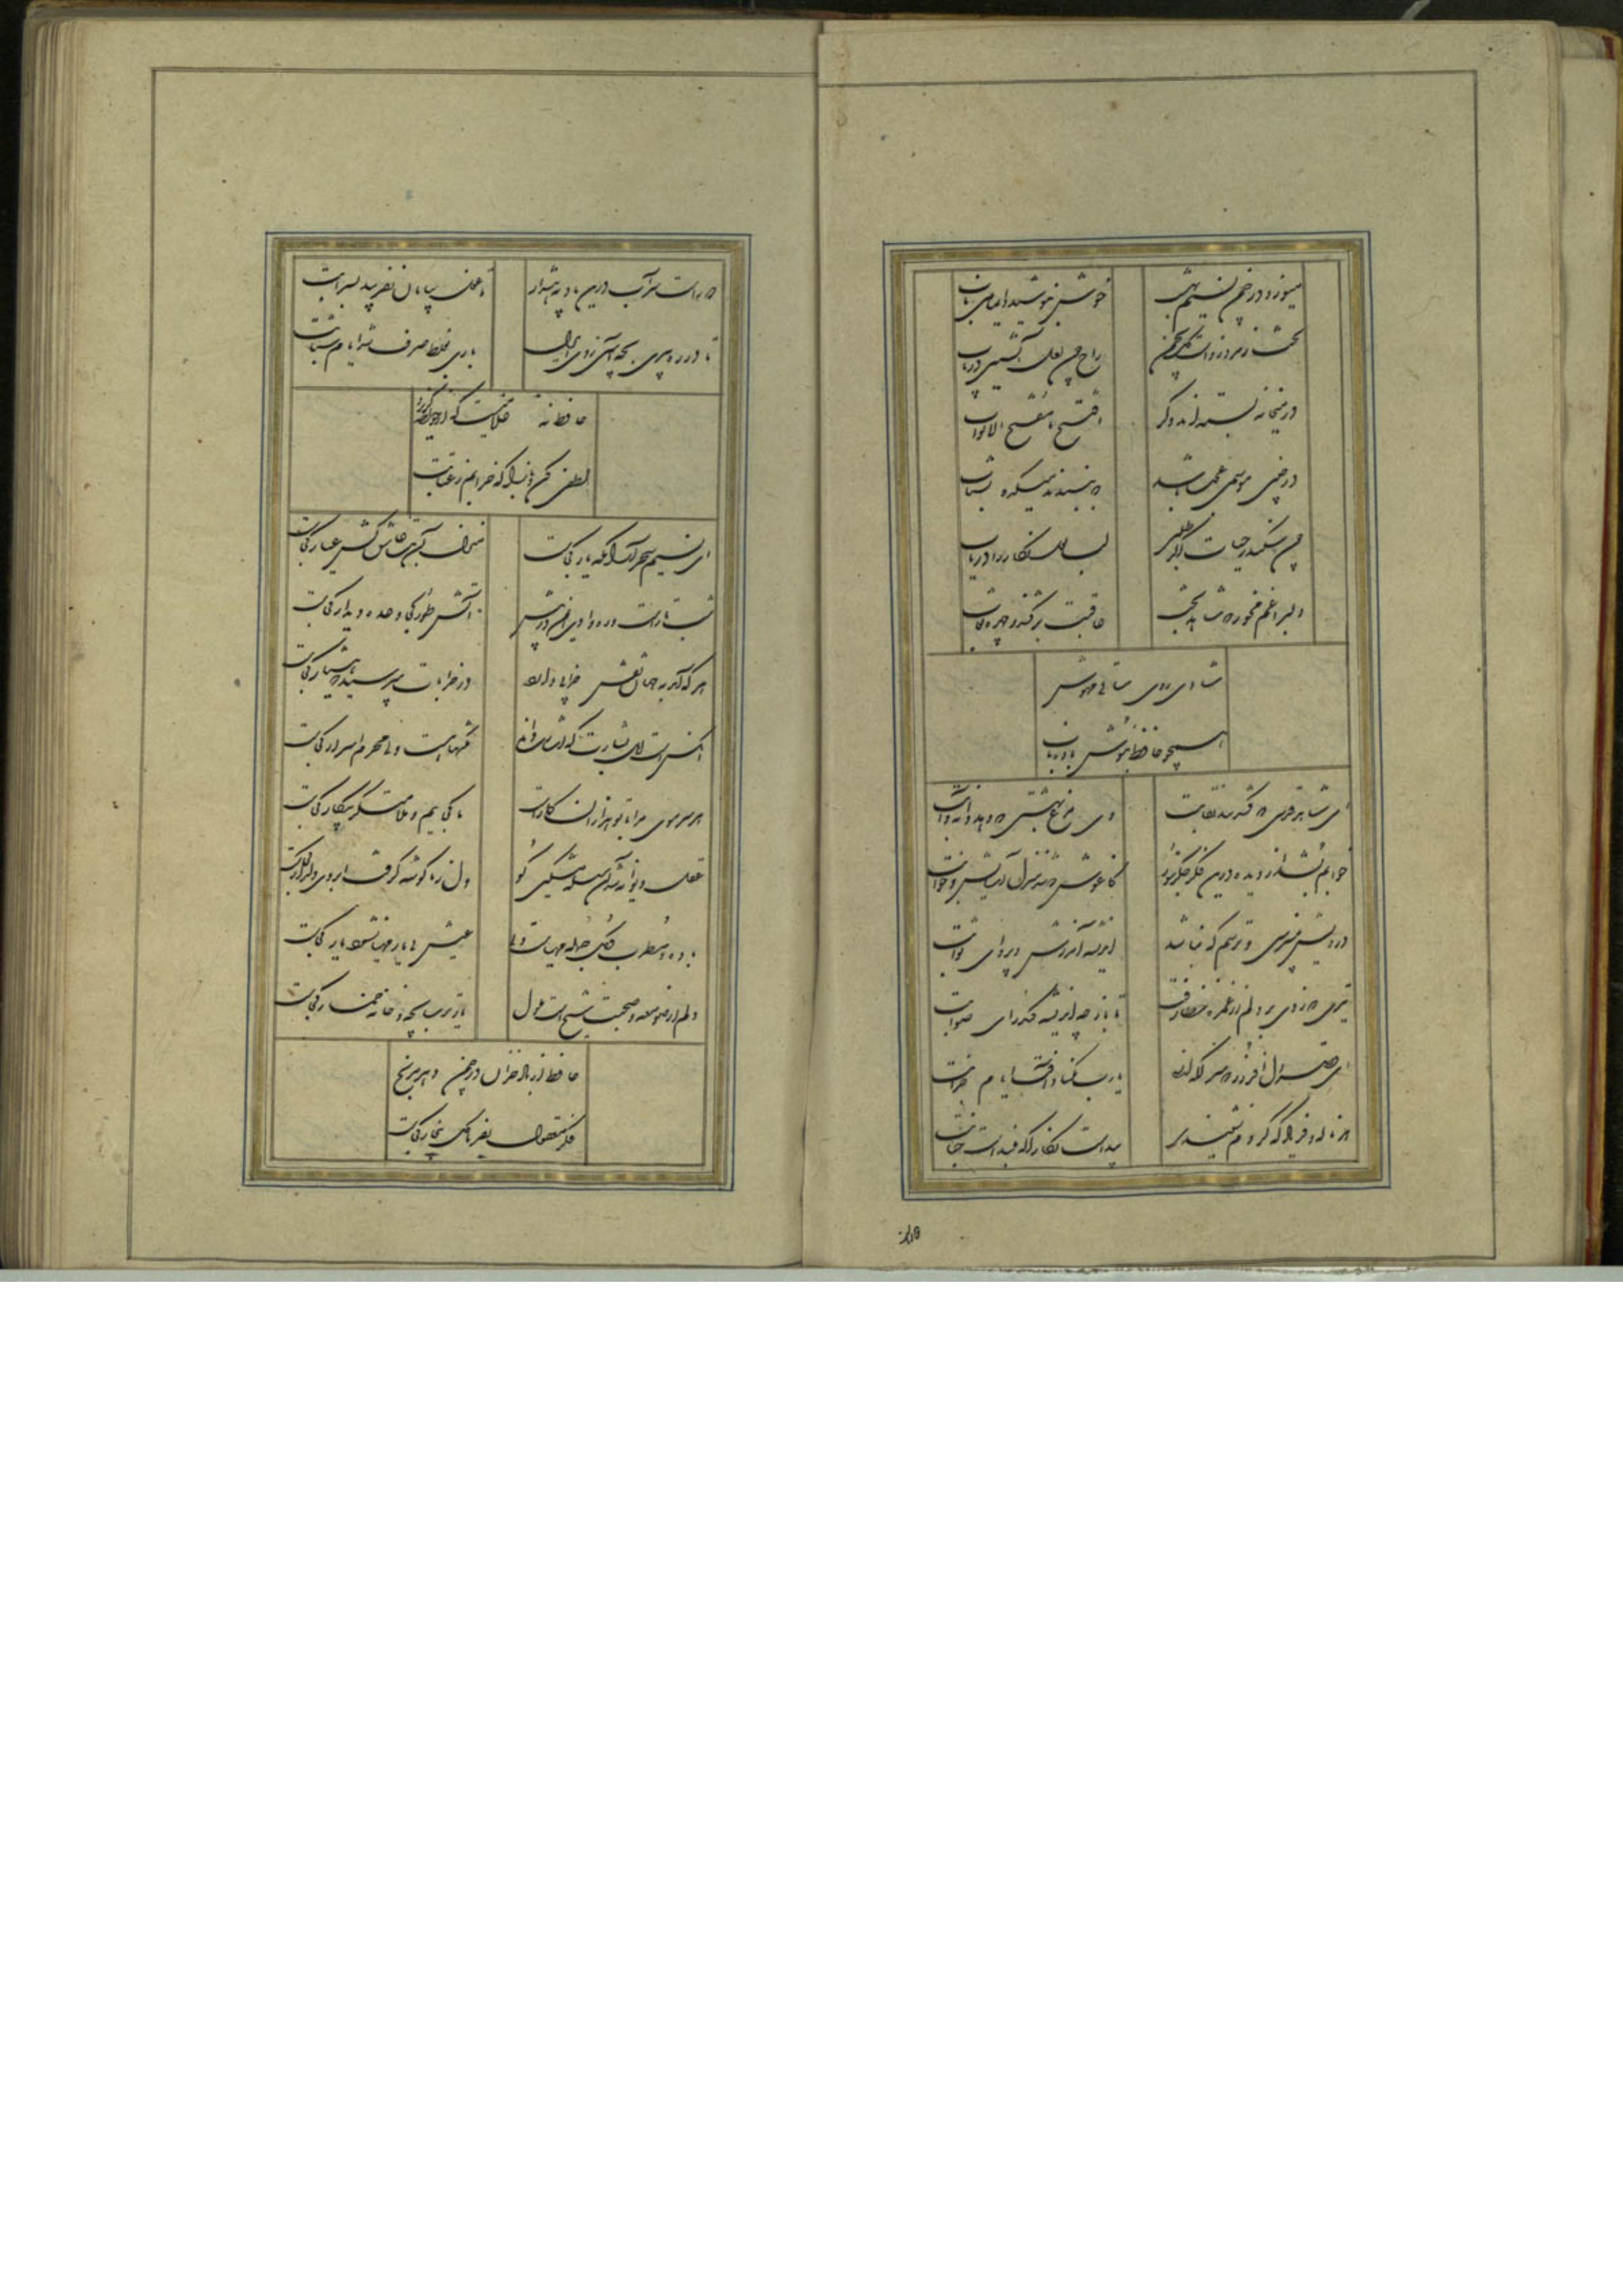 میوزد در چمن نسیم بهشت
خوش بنوشید دایما می ناب
تخت زمرد زده است گل بچمن
راح چون لعل آتشین دریاب
در میخانه بسته اند دگر
افتتح یا مفتح الابواب
در چنین موسمی عجب باشد
که ببندند میکده بشتاب
چون سکندر حیات اگر طلبی
لب لعل نگار را دریاب
عاقبت برکند ز چهره نقاب
شادی روی ساقی مهوش
همچو حافظ بنوش باده ناب
ای شاهد قدسی که کشد بند نقابت
وی مرغ بهشتی که دهد دانه و آبت
خوابم بشد از دیده درین فکر جگرسوز
کاغوش که شد منزل آسایش و خوابت
درویش نمی پرسی و ترسم که نباشد
اندیشه آمرزش و پروای ثوابت
تیری که زدی بر دلم از غمزه خطا رفت
تا باز چه اندیشه کند رای صوابت
ای قصر دل افروز که منزلگه انسی
یارب مکناد آفت ایام خرابت
هر ناله و فریاد که کردم نشنیدی
پیداست نگارا که بلند است جنابت
دور است
دور است سر آب درین بادیه هشدار
تا غول بیابان نفریبد بسرابت
تا در ره پیری بچه آیین روی ایدل
باری بغلط صرف شد ایام شبابت
حافظ نه غلامیست که از خواجه گریزد
لطفی کن و باز آ که خرابم ز عتابت
ای نسیم سحر آرامگه یار کجاست
منزل آن مه عاشق کش عیار کجاست
شب تار است و ره وادی ایمن در پیش
آتش طور کجا وعده دیدار کجاست
هر که آمد بجهان نقش خرابی دارد
در خرابات مپرسید که هشیار کجاست
آنکس است اهل بشارت که اشارت داند
نکتها هست ولی محرم اسرار کجاست
هر سر موی مرا با تو هزاران کار است
ما کجاییم و ملامتگر بیکار کجاست
عقل دیوانه شد آن سلسله مشکین کو
دل ز ما گوشه گرفت ابروی دلدار کجاست
باده و مطرب و گل جمله مهیاست ولی
عیش بی یار مهنا نشود یار کجاست
دلم از صومعه و صحبت شیخ است ملول
یار ترسا بچه و خانه خمار کجاست
حافظ از باد خزان در چمن دهر مرنج
فکر معقول بفرما گل بیخار کجاست